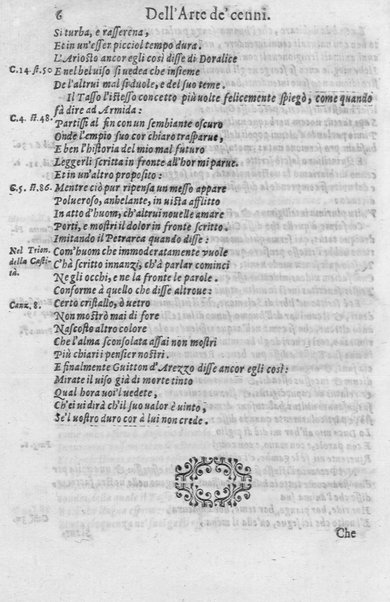 6 Dell'Arte de' cenni.
Si turba, e rasserena,
Et in un'esser picciol tempo dura.
L'Ariosto ancor egli così disse di Doralice
C.14 st.50 E nel bel uiso si uedea che insieme
De l'altrui mal si duole, e del suo teme.
Il Tasso l'istesso concetto più uolte felicemente spiegò, come quando
fà dire ad Armida:
C.4. st.48. Partissi al fin con un sembiante oscuro
Onde l'empio suo cor chiaro trasparue,
E ben l'historia del mio mal futuro
Leggerli scritta in fronte all'hor mi parue.
Et in un'altro proposito:
C.5. st.86. Mentre ciò pur ripensa un messo appare
Polueroso, anhelante, in uista afflitto
In atto d'huom, ch'altrui nouelle amare
Porti, e mostri il dolor in fronte scritto.
Imitando il Petrarca quando disse:
Nel Trion. della Castità. Com'huom che immoderatamente vuole
C'hà scritto innanzi, ch'à parlar cominci
Ne gli occhi, e ne la fronte le parole.
Conforme à quello che disse altroue.
Canz. 8. Certo cristallo, ò uetro
Non mostrò mai di fore
Nascosto altro colore
Che l'alma sconsolata assai non mostri
Più chiari i pensier nostri.
E finalmente Guitton d'Arezzo disse ancor egli così:
Mirate il uiso già di morte tinto
Qual hora uoi'l uedete,
Ch'ei ui dirà ch'il suo valor è uinto,
Se'l uostro duro cor à lui non crede.
Che